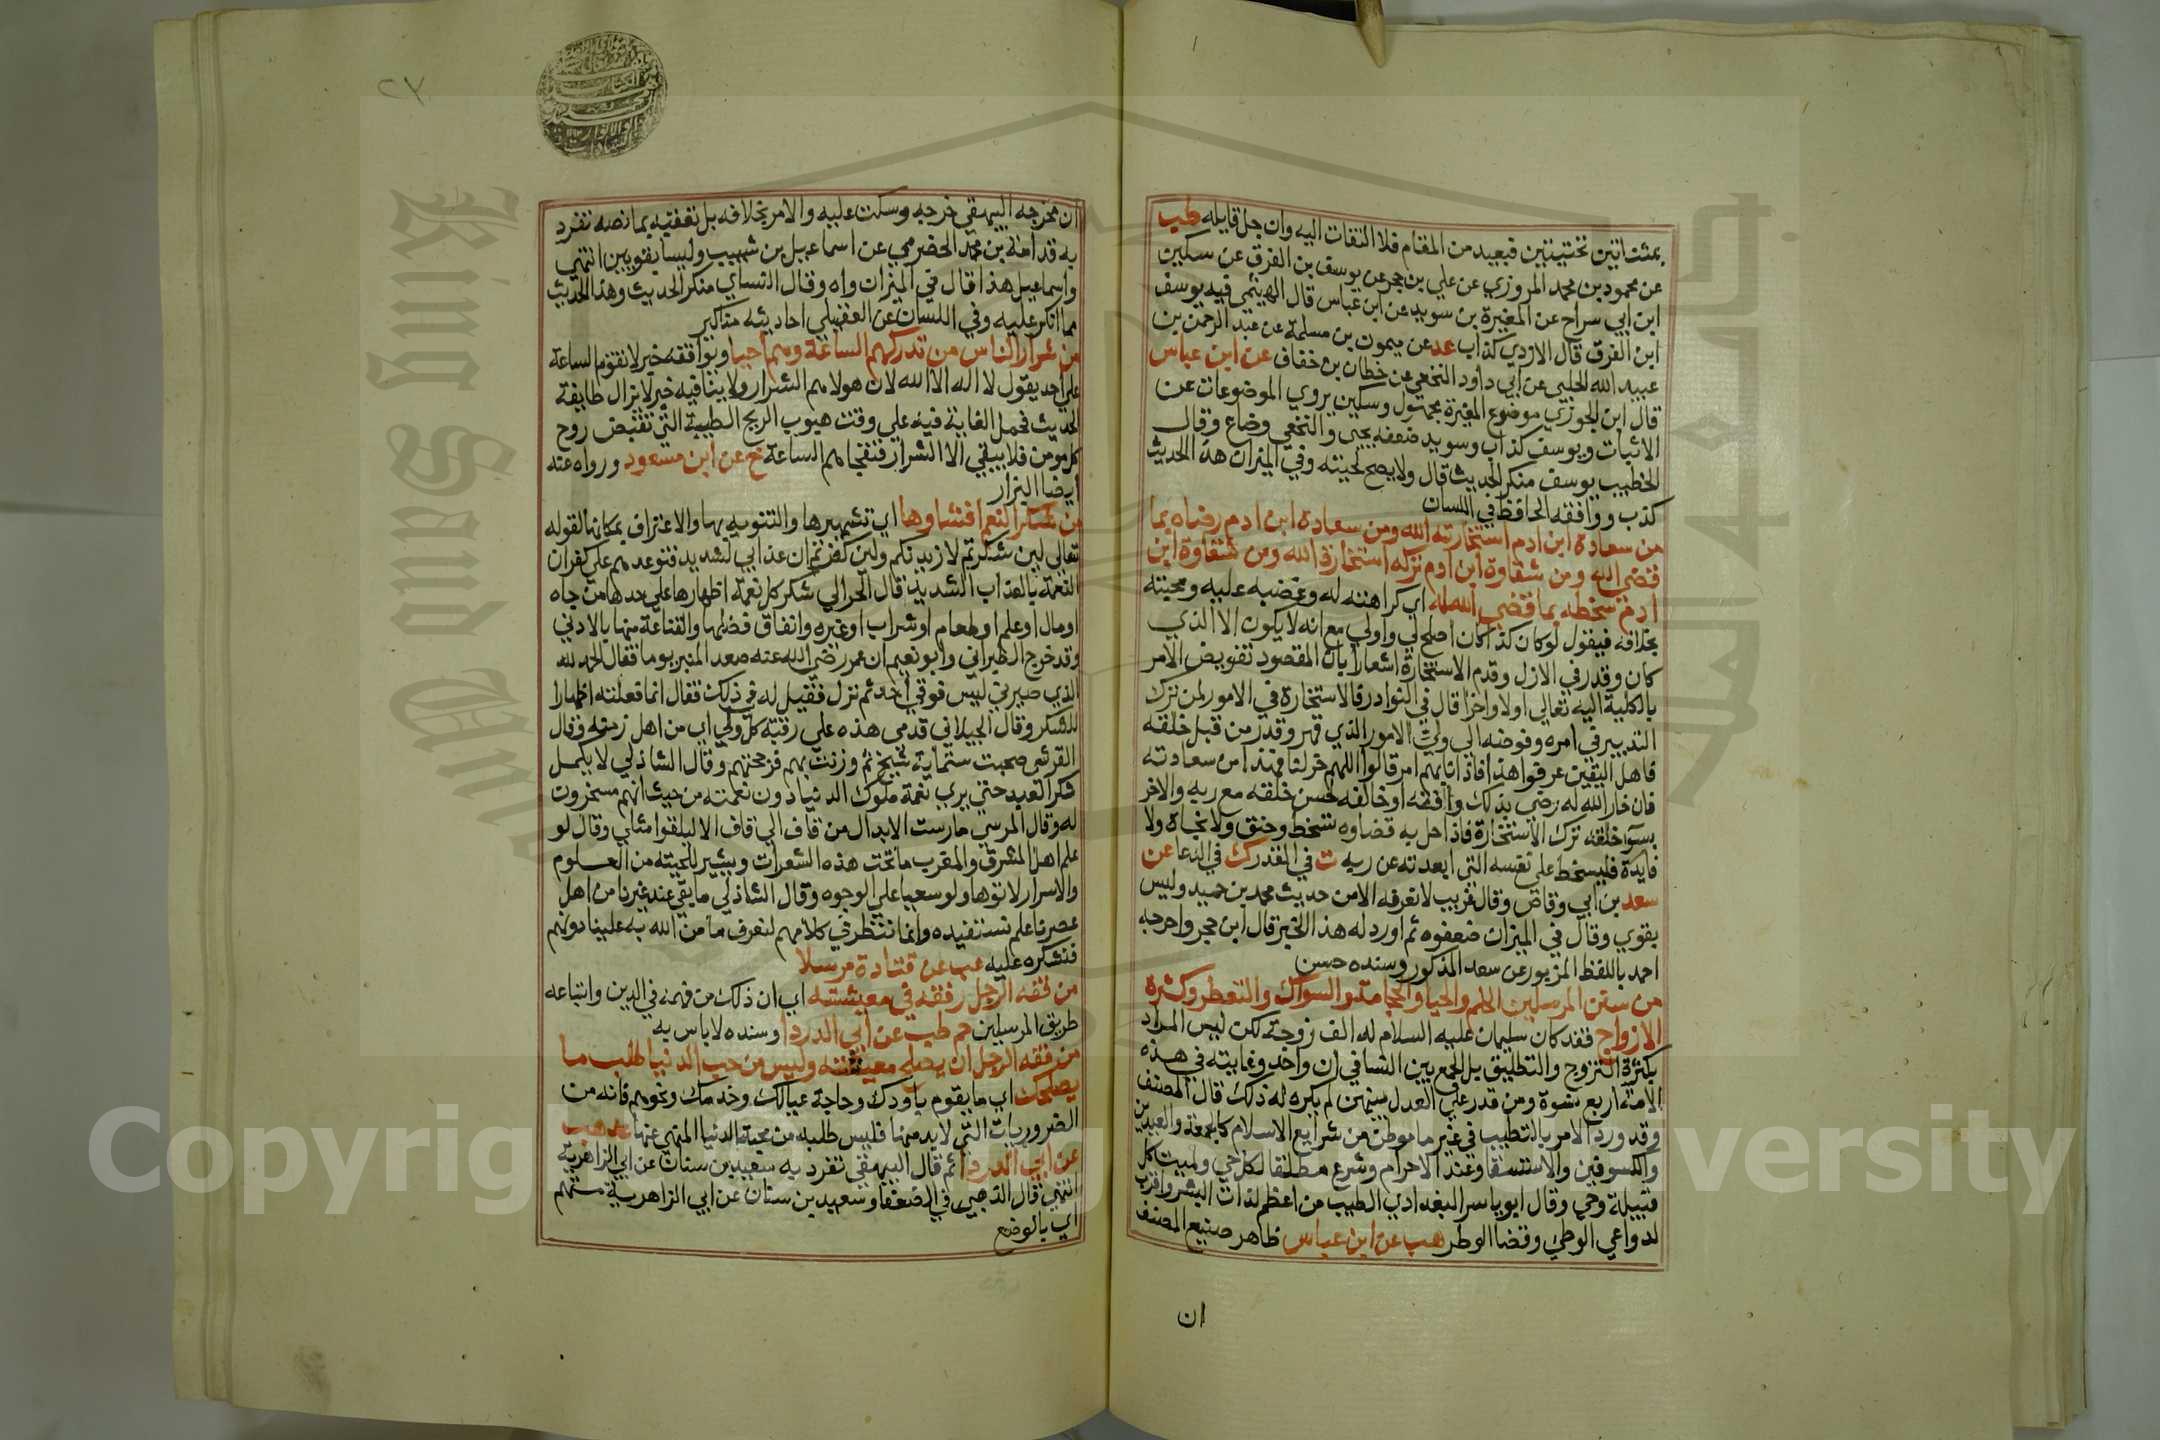 بمثناتين تحتيتين فبعيد من المقام فلا التفات اليه وان جل قايله طب
عن محمود بن محمد المروزي عن علي بن حجر عن يوسف بن الغرق عن سكين
ابن ابي سراح عن المغيرة بن سويد عن ابن عباس قال الهيثمي فيه يوسف
ابن الغرق قال الازدي كذاب عد عن ميمون بن مسلمة عن عبد الرحمن بن
عبيد الله الحلبي عن ابي داود النخعي عن خطان بن خفاف عن ابن عباس
قال ابن الجوزي موضوع المغيرة مجهول وسكين يروي الموضوعات عن
الاثبات ويوسف كذاب وسويد ضعفه يحيى والنخعي وضاع وقال
الخطيب يوسف منكر الحديث قال ولا يصح لحيته وفي الميزان هذا الحديث
كذب ووافقه الحافظ في اللسان
من سعادة ابن ادم استخارته الله ومن سعادة ابن ادم رضاه بما
قضى الله ومن شقاوة ابن ادم تركه استخارة الله ومن شقاوة ابن
ادم سخطه بما قضى الله له اي كراهته له وغضبه عليه ومحبته
بخلافه فيقول لو كان كذا كان اصلح لي واولي مع انه لا يكون الا الذي
كان وقدر في الازل وقدم الاستخارة اشعارا بان المقصود تفويض الامر
بالكلية اليه تعالى اولا واخرا قال في النوادر فالاستخارة في الامور لمن ترك
التدبير في امره وفوضه الي ولي الامور الذي قهر وقدر من قبل خلقه
فاهل اليقين عرفوا هذا فاذا نابهم امر قالوا اللهم خر لنا فهذا من سعادته
فان خار الله له رضى بذلك وافقه او خالفه لحسن خلقه مع ربه والاخر
بسوء خلقه ترك الاستخارة فاذا حل به قضاوه سخط وحنق ولا نجاة ولا
فايدة فليسخط على نفسه التى ابعدته عن ربه ت في القدر ك في الدعا عن
سعد بن ابي وقاص وقال غريب لا نعرفه الا من حديث محمد بن حميد وليس
بقوي وقال في الميزان ضعفوه ثم اورد له هذا الخبر قال ابن حجر واخرجه
احمد باللفظ المزبور عن سعد المذكور وسنده حسن
من سنن المرسلين الحلم والحيا والحجامة والسواك والتعطر وكثرة
الازواج فقد كان سليمان عليه السلام له الف زوجة لكن ليس المراد
بكثرة التزوج والتطليق بل الجمع بين النسا في ان واحد وغايته في هذه
الامة اربع نسوة ومن قدر علي العدل بينهن لم يكره له ذلك قال المصنف
وقد ورد الامر بالتطيب في غير ما موطن من شرايع الاسلام كالجمعة والعيدين
والكسوفين والاستسقا وعند الاحرام وشرع مطلقا لكل حي ولميت كل
قبيلة وحي وقال ابو ياسر البغدادي الطيب من اعظم لذات البشر واقوى
لدواعي الوطي وقضا الوطر هب عن ابن عباس ظاهر صنيع المصنف
ان
ان مخرجه البيهقي خرجه وسكت عليه والامر بخلافه بل تعقبه بما نصه تفرد
به قدامة بن محمد الحضرمي عن اسماعيل بن شبيب وليسا بقويين انتهى
واسماعيل هذا قال في الميزان واه وقال النساي منكر الحديث وهذا الحديث
مما انكر عليه وفي اللسان عن العقيلي احاديثه مناكير
من شرار الناس من تدركهم الساعة وهم احيا ونوافقه خبر لا تقوم الساعة
علي احد يقول لا اله الا الله لان هولا هم الشرار ولا ينافيه خبر لا تزال طايفة
الحديث فحمل الغاية فيه علي وقت هبوب الريح الطيبة التي تقبض روح
كل مومن فلا يبقي الا الشرار فتفجاهم الساعة خ عن ابن مسعود ورواه عنه
ايضا البزار
من شكر النعم افشاوها اي تشهيرها والتنويه بها والاعتراف بمكانها لقوله
تعالي لين شكرتم لازيدنكم ولين كفرتم ان عذابي لشديد فتوعدهم علي كفران
النعمة بالعذاب الشديد قال الحرالي شكر كل نعمة اظهارها علي حدها من جاه
او مال او علم او طعام او شراب او غيره وانفاق فضلها والقناعة منها بالادني
وقد خرج الطبراني وابو نعيم ان عمر رضى الله عنه صعد المنبر يوما فقال الحمد لله
الذي صيرني ليس فوقي احد ثم نزل فقيل له في ذلك فقال انما فعلته اظهارا
للشكر وقال الجيلاني قدمي هذه على رقبة كل ولي اي من اهل زمنه وقال
القرشي صحبت ستماية شيخ ثم وزنت بهم فرجحتهم وقال الشاذلي لا يكمل
شكر العبد حتي يري نعمة ملوك الدنيا دون نعمته من حيث انهم مسخروت
له وقال المرسي مارست الابدال من قاف الي قاف الا ليلقوا مثلي وقال لو
علم اهل المشرق والمغرب ما تحت هذه الشعرات ويشير للحيته من العلوم
والاسرار لاتوها ولو سعيا علي الوجوه وقال الشاذلي ما بقي عند غيرنا من اهل
عصرنا علم نستفيده وانما ننظر في كلامهم لنعرف ما من الله به علينا دونهم
فنشكره عليه عب عن قتادة مرسلا
من فقه الرجل رفقه في معيشته اي ان ذلك من فهمه في الدين واتباعه
طريق المرسلين حم طب عن ابي الدردا وسنده لا باس به
من فقه الرجل ان يصلح معيشته وليس من حب الدنيا طلب ما
يصلحك اي ما يقوم باودك وحاجة عيالك وخدمك ونحوهم فانه من
الضروريات التي لا بد منها فليس طلبه من محبة الدنيا المنهي عنها عد هب
عن ابي الدردا ثم قال البيهقي تفرد به سعيد بن سنان عن ابي الزاهرية
انتهي قال الذهبي في الضعفا وسعيد بن سنان عن ابي الزاهرية متهم
اي بالوضع
Copyright © King Saud University